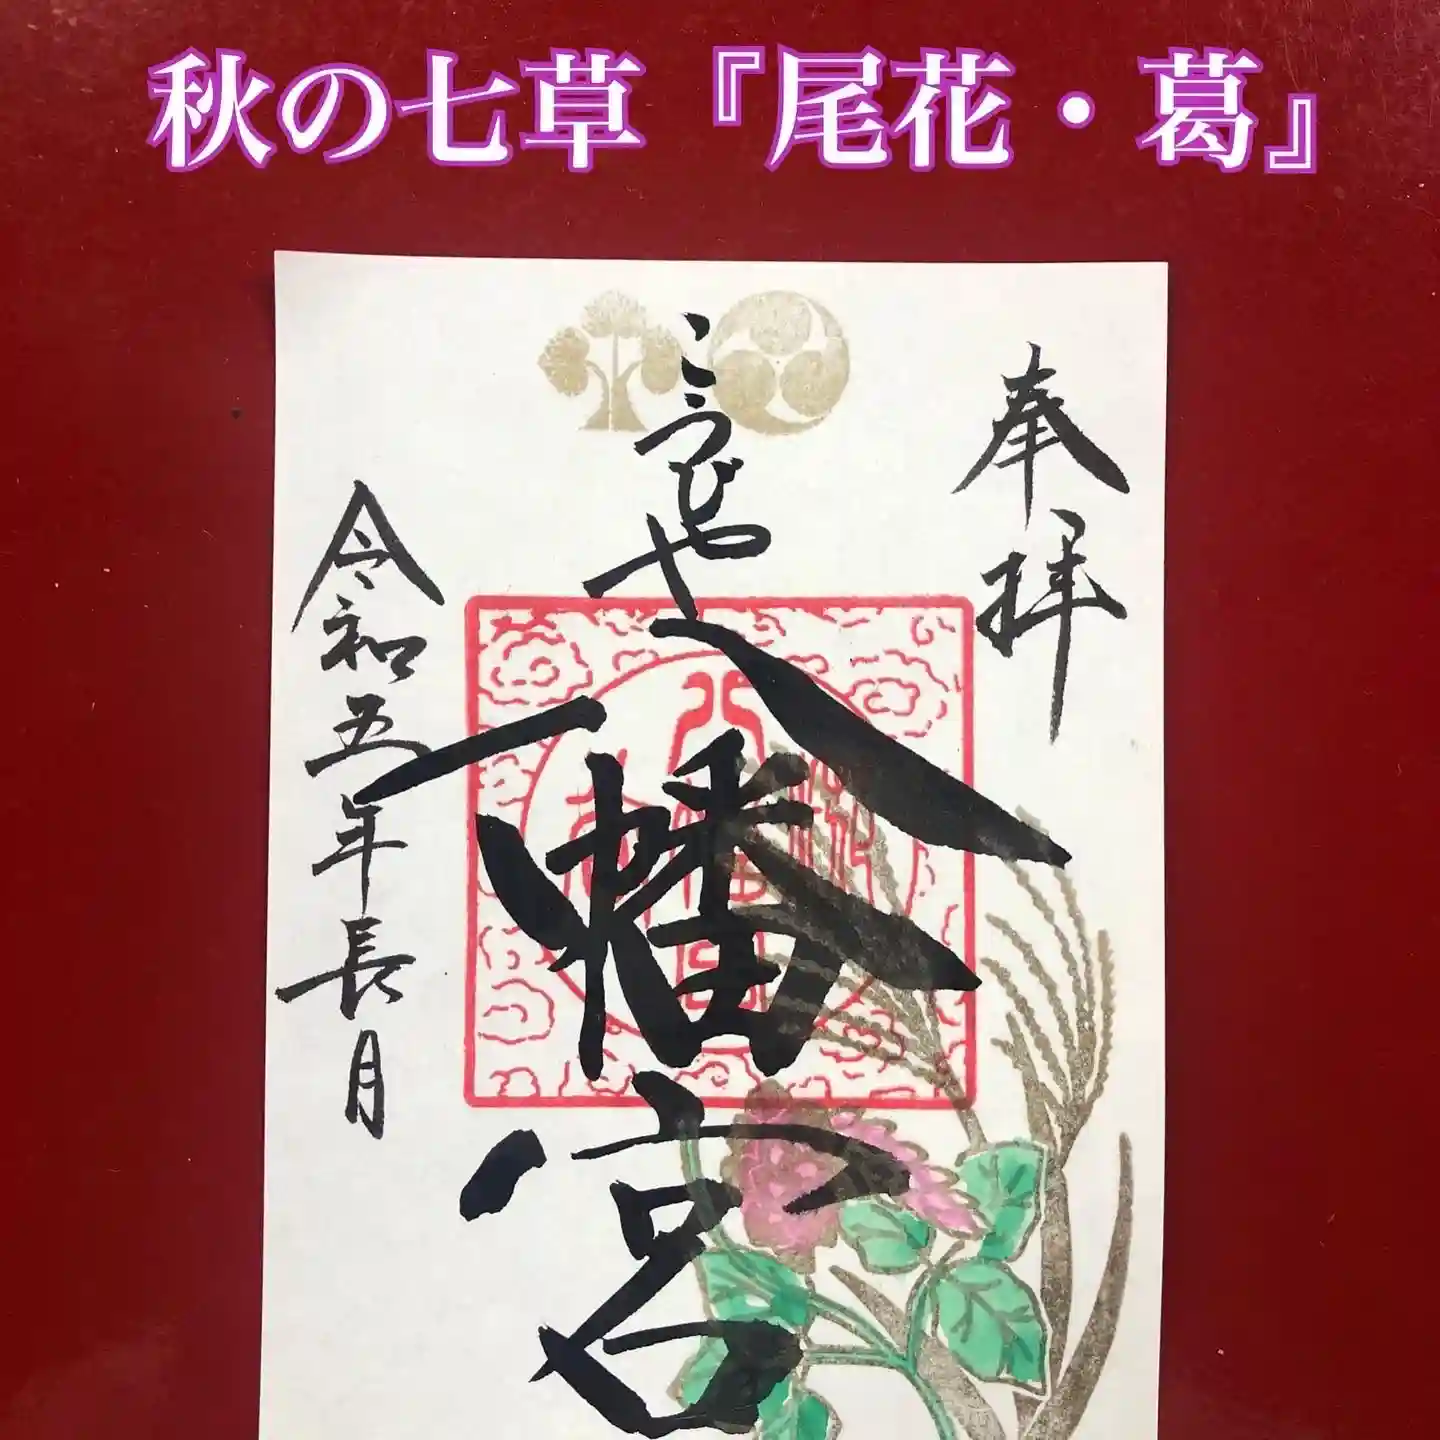 秋の七草『尾花・葛』
奉拝
八幡宮
令和五年長月